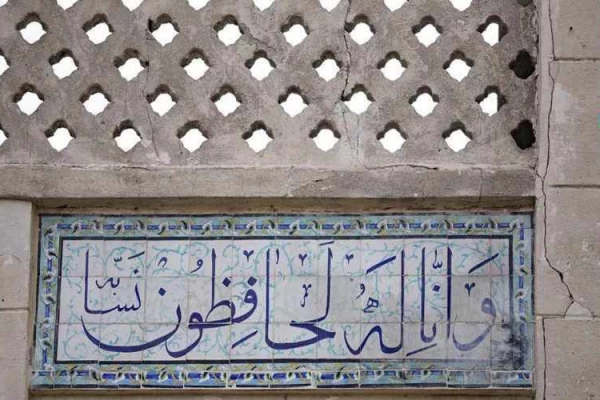 وَاِنّا لَهُ لَحافِظُون